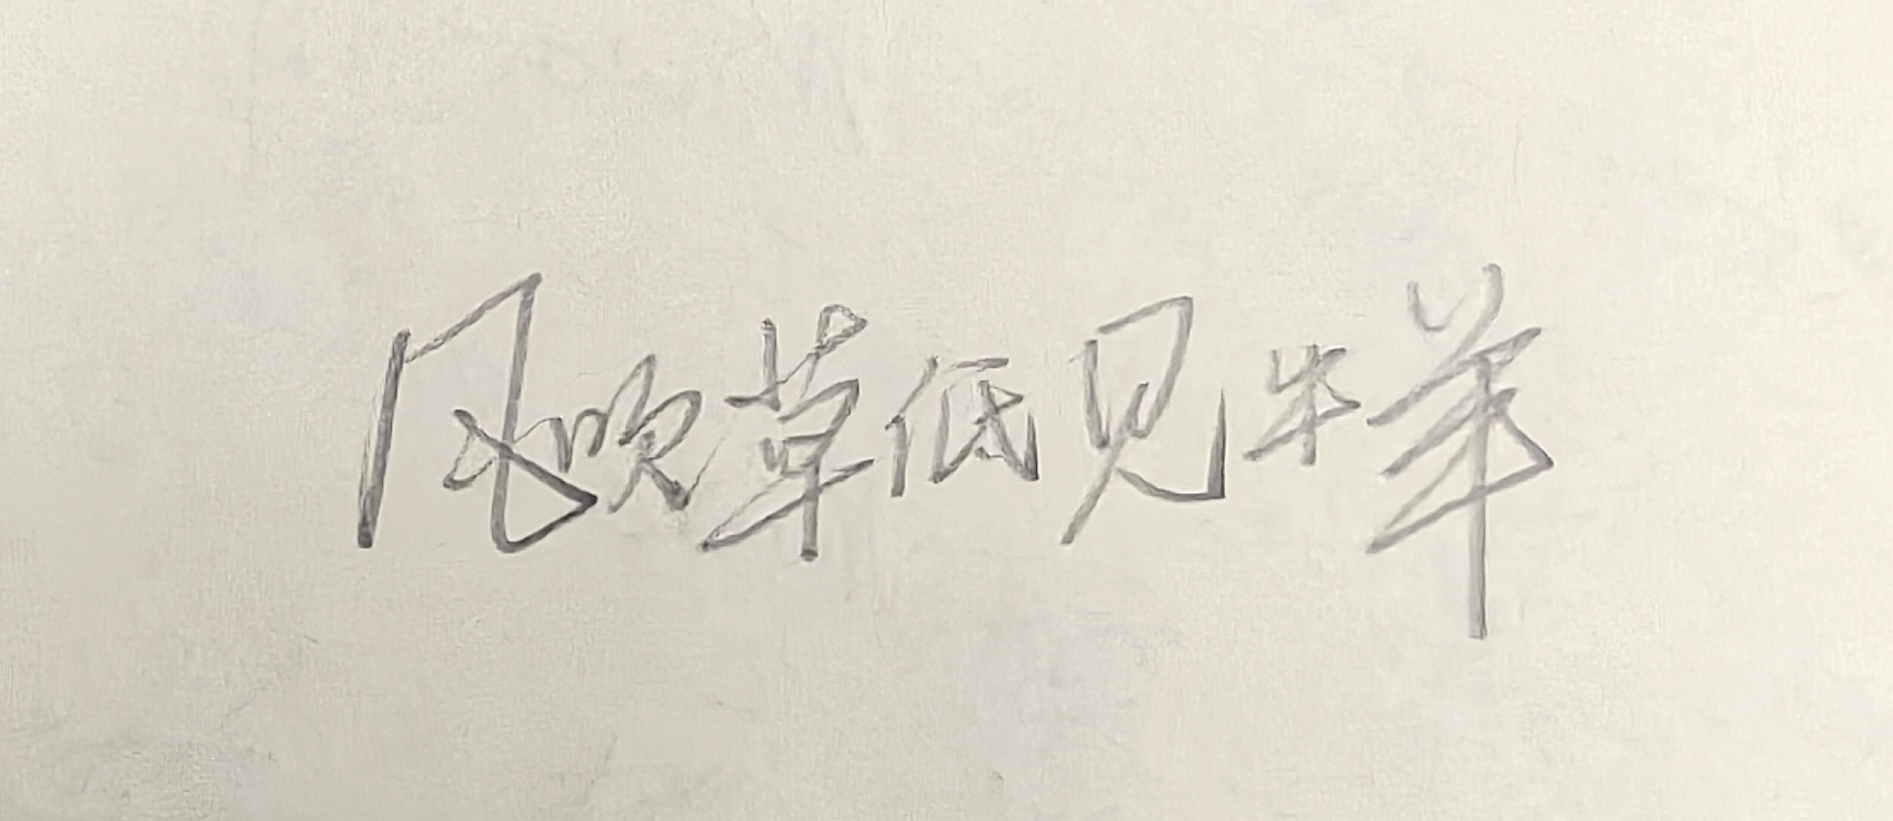 风吹草低见牛羊